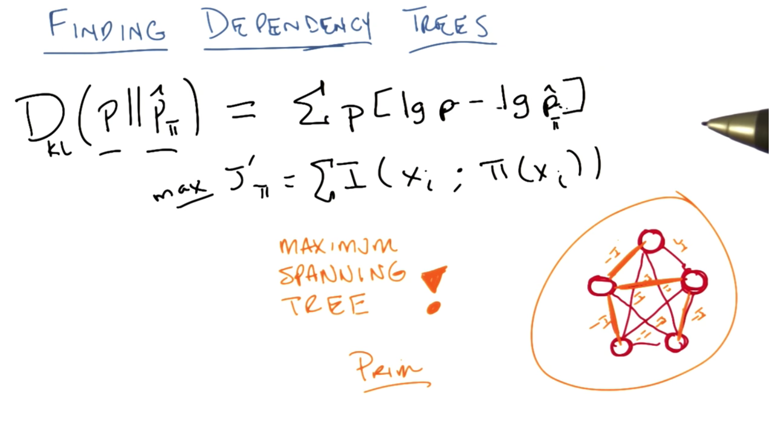 FINDING DEPENDENCY TREES
D_KL (p || p̂_π) = Σ p [lg p - lg p̂_π]
max J'_π = Σ I (x_i ; π(x_i))
MAXIMUM
SPANNING
TREE !
PRIM
-I
-I
-I